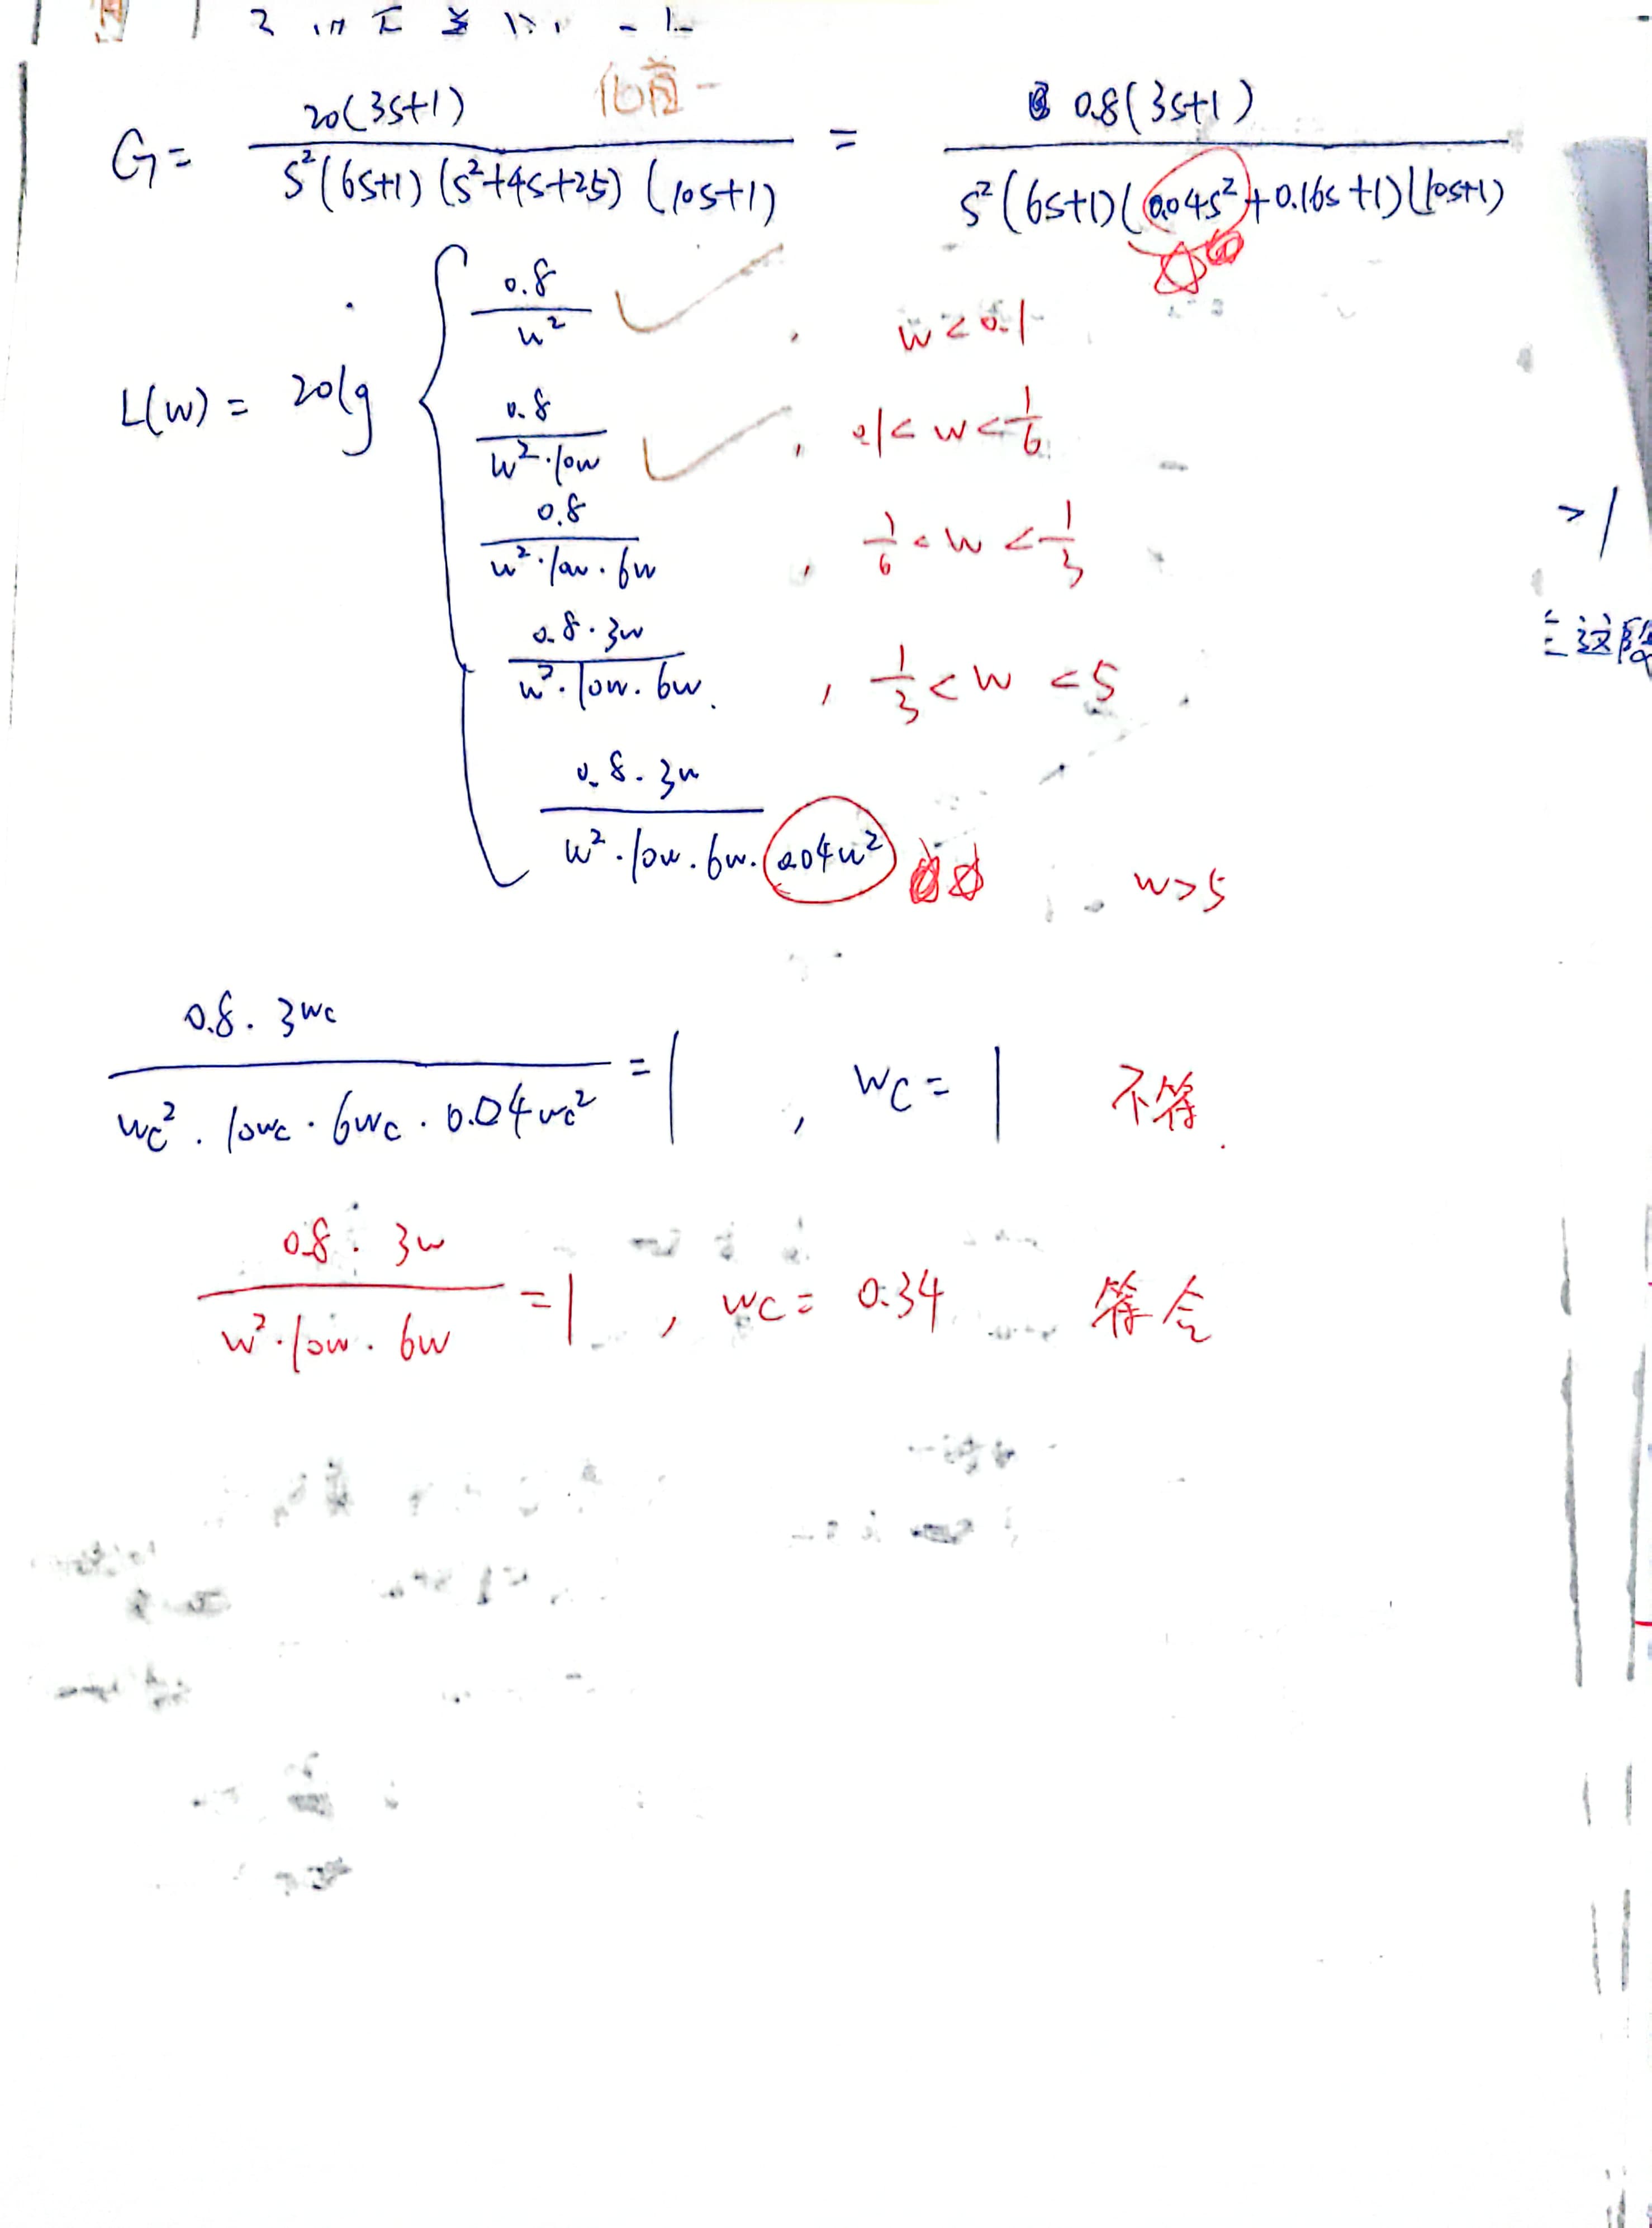 G = 20(3s+1) / s²(6s+1)(s²+4s+25)(10s+1) = 0.8(3s+1) / s²(6s+1)(0.04s²+0.16s+1)(10s+1)
L(w) = 20lg { 0.8 / w² , w<0.1
0.8 / w²·10w , 0.1<w<1/6
0.8 / w²·10w·6w , 1/6<w<1/3
0.8·3w / w²·10w·6w. , 1/3<w<5
0.8·3w / w²·10w·6w·0.04w² , w>5
>1
这段
0.8·3wc / wc²·10wc·6wc·0.04wc² = 1 , wc = 1 不符.
0.8·3w / w²·10w·6w = 1 , wc = 0.34 符合